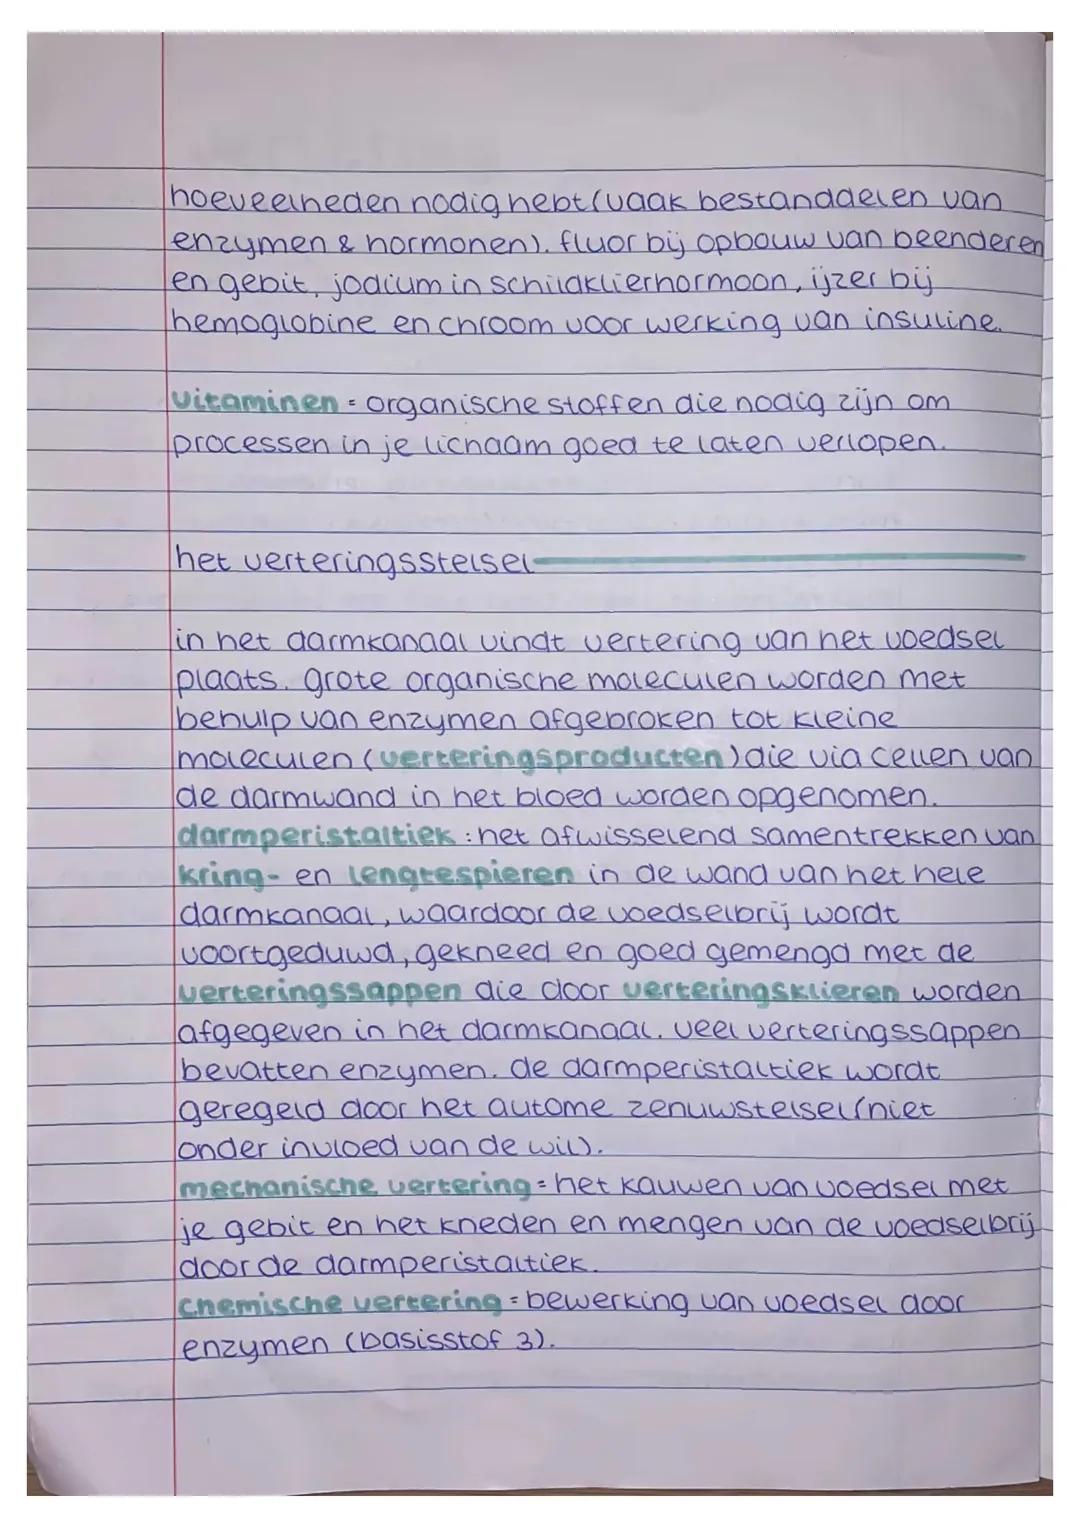 hoeveelheden nodig hebt (vaak bestanddelen van
enzymen & hormonen). fluor bij opbouw van beenderen
en gebit, jodium in schildklierhormoon, ijzer bij
hemoglobine en chroom voor werking van insuline.
vitaminen = organische stoffen die nodig zijn om
processen in je lichaam goed te laten verlopen.
het verteringsstelsel
in het darmkanaal vindt vertering van het voedsel
plaats. grote organische moleculen worden met
behulp van enzymen afgebroken tot kleine
moleculen (verteringsproducten) die via cellen van
de darmwand in het bloed worden opgenomen.
darmperistaltiek : het afwisselend samentrekken van
kring- en lengtespieren in de wand van het hele
darmkanaal, waardoor de voedselbrij wordt
voortgeduwd, gekneed en goed gemengd met de
verteringssappen die door verteringsklieren worden
afgegeven in het darmkanaal. veel verteringssappen
bevatten enzymen. de darmperistaltiek wordt
geregeld door het autome zenuwstelsel (niet
onder invloed van de wil).
mechanische vertering = het kauwen van voedsel met
je gebit en het kneden en mengen van de voedselbrij
door de darmperistaltiek.
chemische vertering = bewerking van voedsel door
enzymen (basisstof 3).